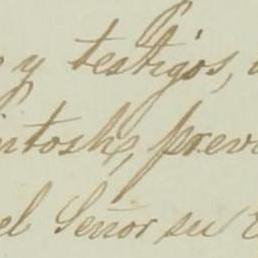 y testigos,
intosh, prev
el Señor su E